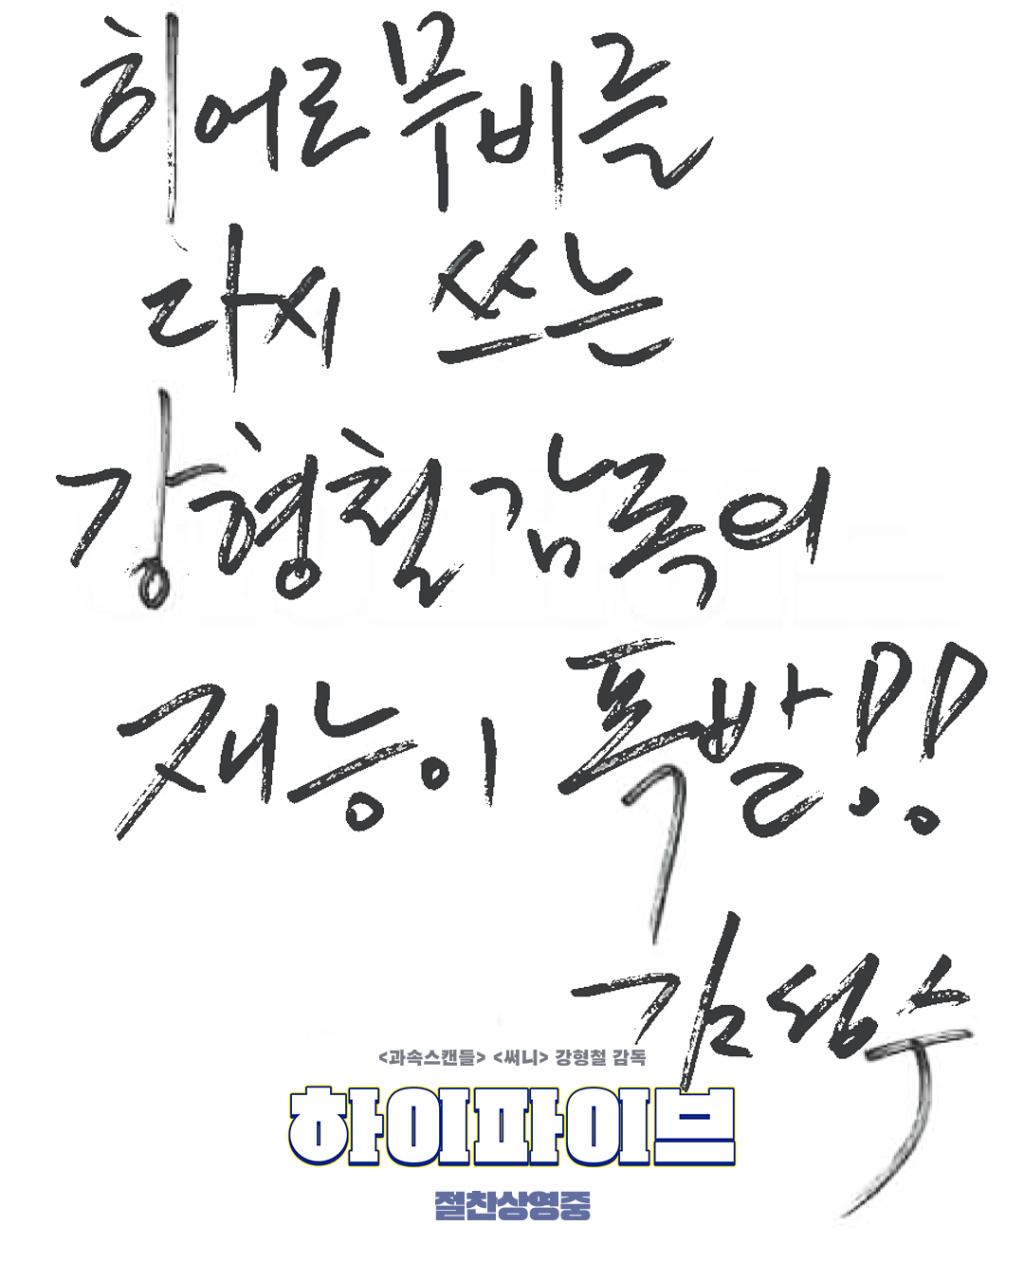 히어로 무비를
다시 쓰는
강형철 감독의
재능이 폭발!!
김성수
<과속스캔들> <써니> 강형철 감독
하이파이브
절찬상영중